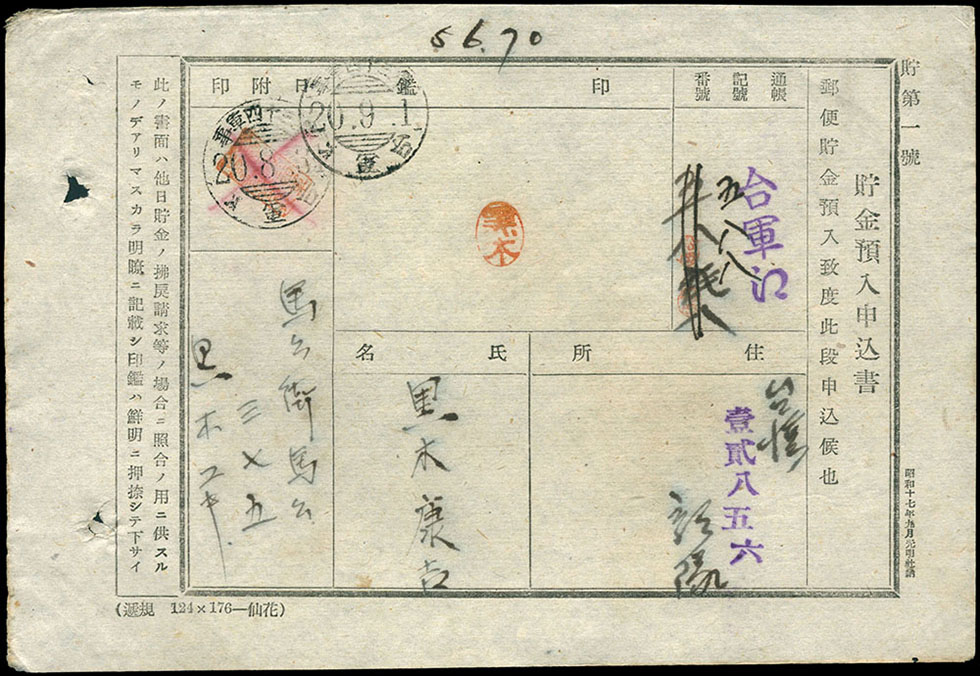 56.70
貯第一號
貯金預入申込書
郵便貯金預入致度此段申込候也
昭和十七年九月元明社納
通帳
記號
番號
台軍江
五八八
印鑑
黒木
日附印
20.9.1
20.8.3
十四軍事
軍
住所
台湾
壹貳八五六
部隊
氏名
黒木康吉
馬公街馬公
三×五
黒木ユキ
此ノ書面ハ他日貯金ノ拂戻請求等ノ場合ニ照合ノ用ニ供スル
モノデアリマスカラ明瞭ニ記載シ印鑑ハ鮮明ニ押捺シテ下サイ
(遞規 124×176—仙花)